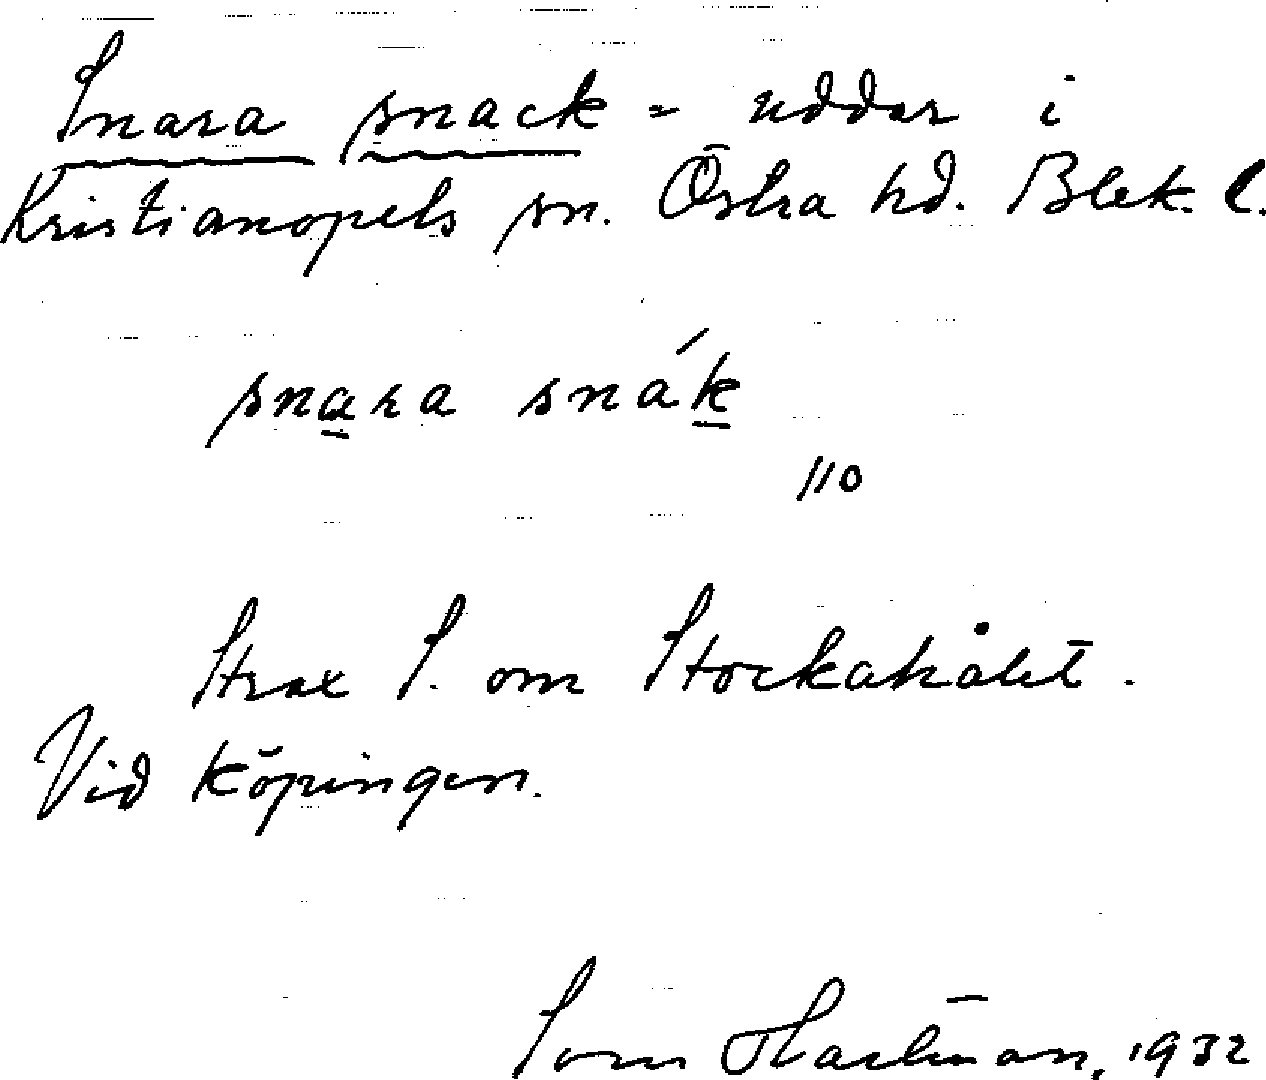 Snara snack = uddar i
Kristianopels sn. Östra hd. Blek. l.
snara snák
110
Strax S. om Stockahålet.
Vid Köpingen.
Sven Hartman, 1932